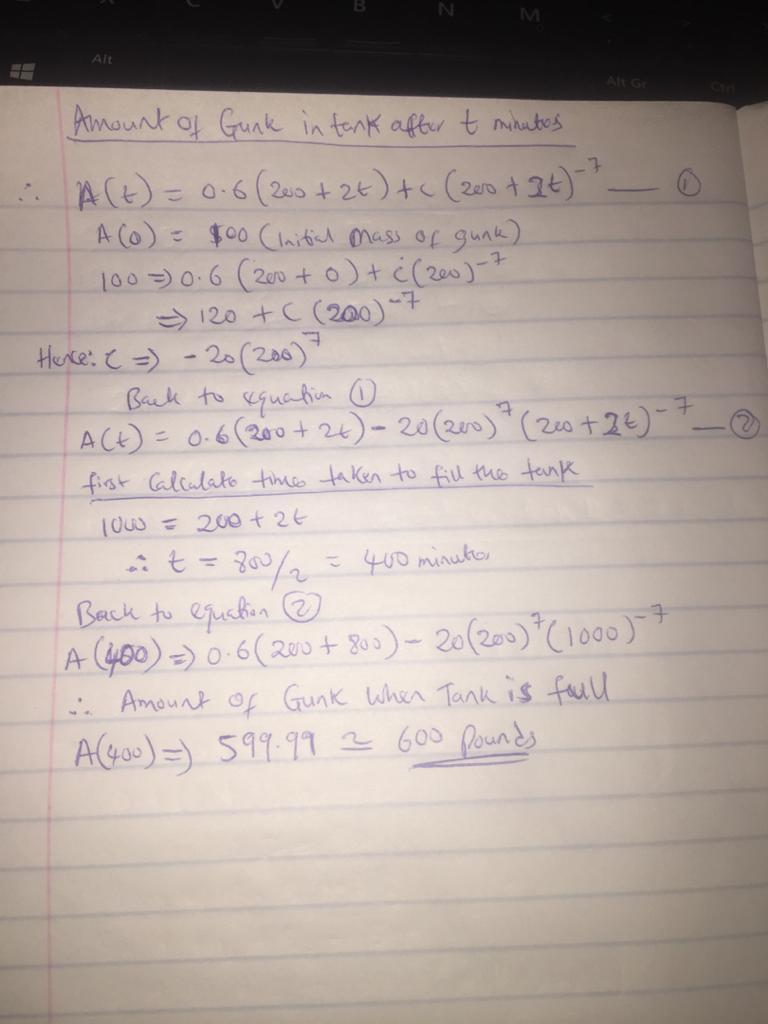 V B N M
Alt Alt Gr Ctrl
Amount of Gunk in tank after t minutes
∴ A(t) = 0.6(200 + 2t) + C(200 + 2t)⁻⁷ — ①
A(0) = 100 (Initial mass of gunk)
100 ⇒ 0.6 (200 + 0) + C(200)⁻⁷
⇒ 120 + C (200)⁻⁷
Hence: C ⇒ - 20(200)⁷
Back to equation ①
A(t) = 0.6(200 + 2t) - 20(200)⁷ (200 + 2t)⁻⁷ — ②
first Calculate time taken to fill the tank
1000 = 200 + 2t
∴ t = 800/2 = 400 minutes
Back to equation ②
A(400) ⇒ 0.6(200 + 800) - 20(200)⁷(1000)⁻⁷
∴ Amount of Gunk when Tank is full
A(400) ⇒ 599.99 ≃ 600 Pounds